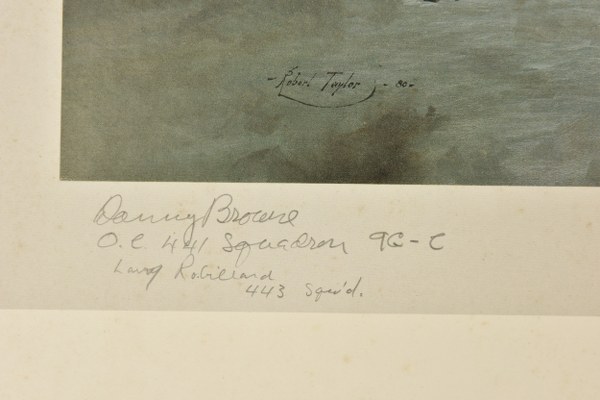 - Robert Taylor - 80 -
Danny Browne
O.C 441 Squadron 9G-C
Larry Robillard
443 Squ'd.